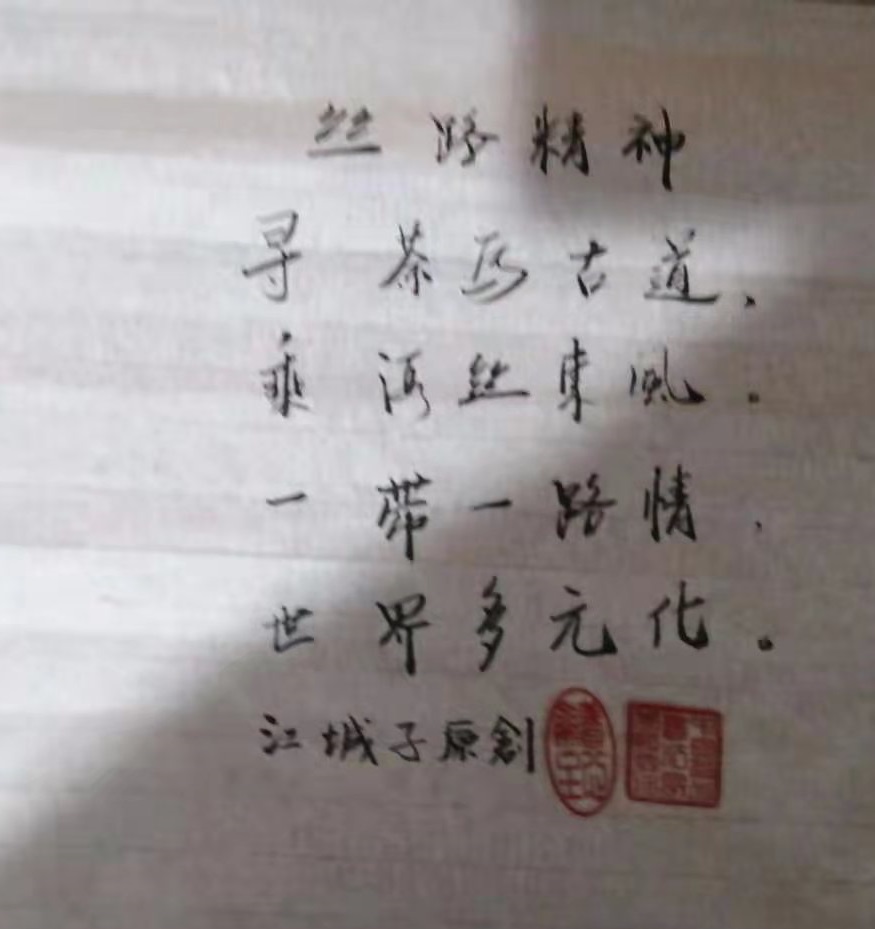 丝路精神
寻茶马古道、
乘海丝東風。
一带一路情、
世界多元化。
江城子原創